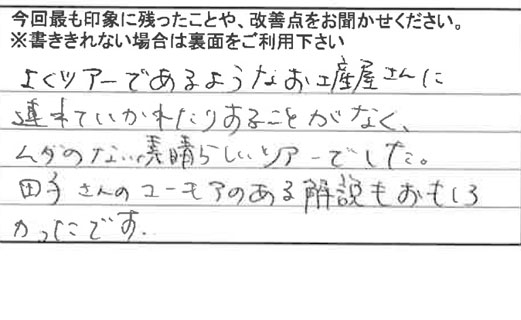 今回最も印象に残ったことや、改善点をお聞かせください。
※書ききれない場合は裏面をご利用下さい
よくツアーであるようなお土産屋さんに
連れていかれたりすることがなく、
ムダのない素晴らしいツアーでした。
さんのユーモアのある解説もおもしろ
かったです.